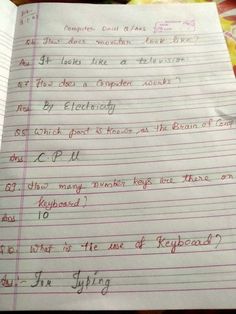 Computer Oral Q/Ans
Q6. How does monitor look like?
Ans It looks like a television.
Q.7 How does a Computer works?
Ans By Electricity
Q8 Which part is known as the Brain of Comp
Ans C.P.U
Q9. How many number keys are there on
Keyboard?
Ans 10
Q10. What is the use of Keyboard?
Ans:- For Typing